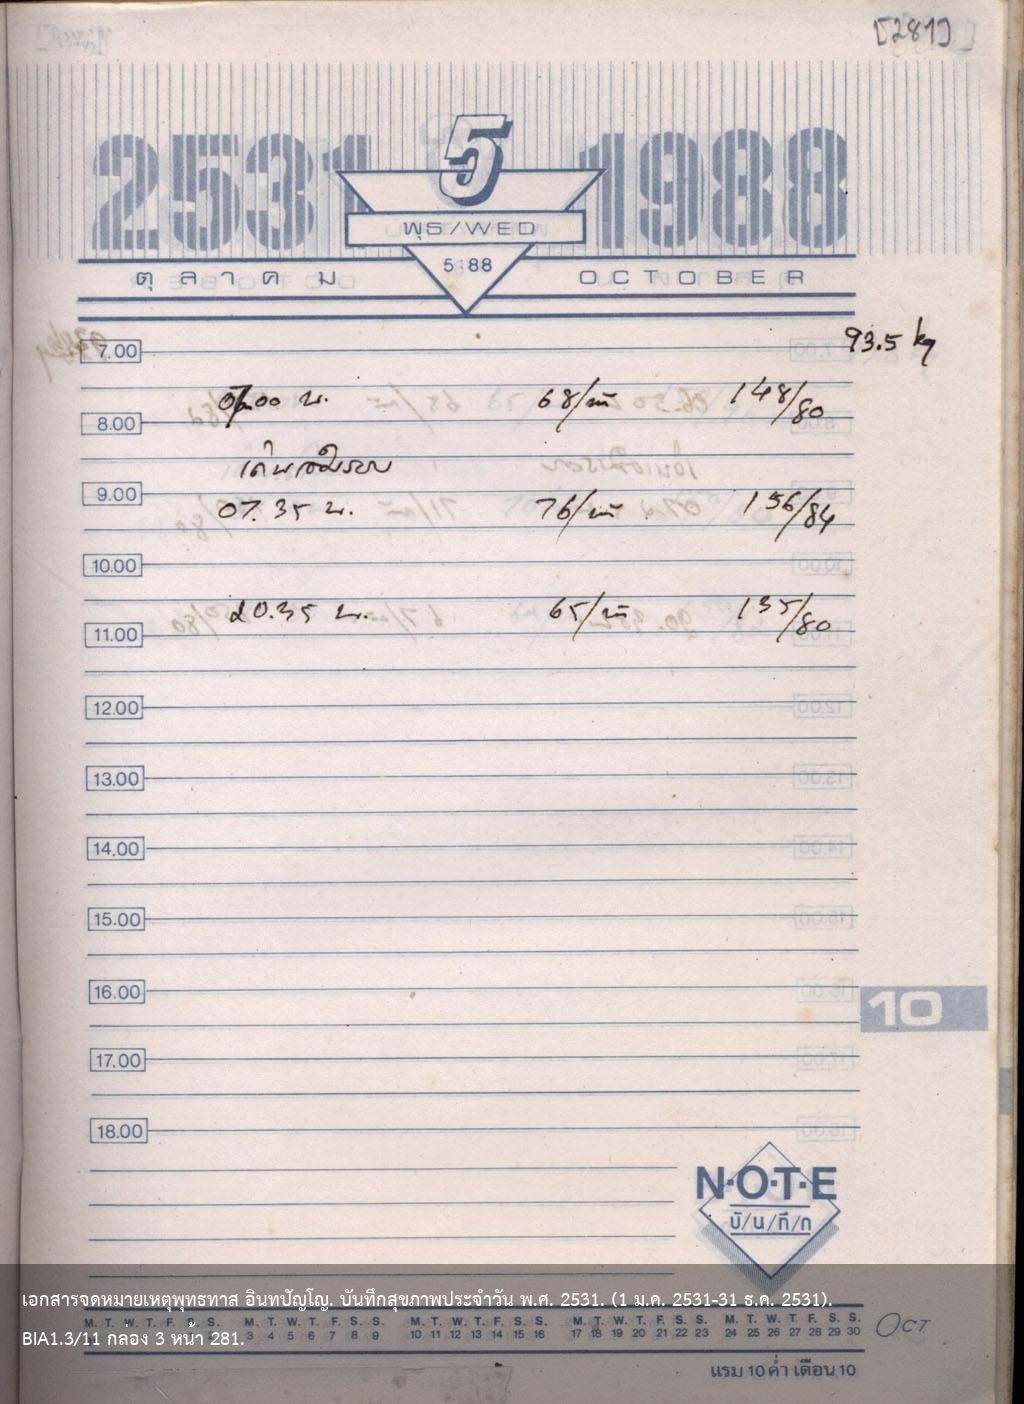 [281]
2531 5 1988
พุธ/WED
5 88
ตุลาคม OCTOBER
7.00 93.5 kg
07.00 น. 68/นาที 148/80
8.00
เดินจงกรม
9.00
07.35 น. 76/นาที 156/84
10.00
20.35 น. 65/นาที 135/80
11.00
12.00
13.00
14.00
15.00
16.00
10
17.00
18.00
N·O·T·E
บั/น/ทึ/ก
เอกสารจดหมายเหตุพุทธทาส อินทปัญโญ. บันทึกสุขภาพประจำวัน พ.ศ. 2531. (1 ม.ค. 2531-31 ธ.ค. 2531).
M. T. W. T. F. S. S. M. T. W. T. F. S. S. M. T. W. T. F. S. S. M. T. W. T. F. S. S. M. T. W. T. F. S. S. OCT
BIA1.3/11 กล่อง 3 หน้า 281. 3 4 5 6 7 8 9 10 11 12 13 14 15 16 17 18 19 20 21 22 23 24 25 26 27 28 29 30
แรม 10 ค่ำ เดือน 10